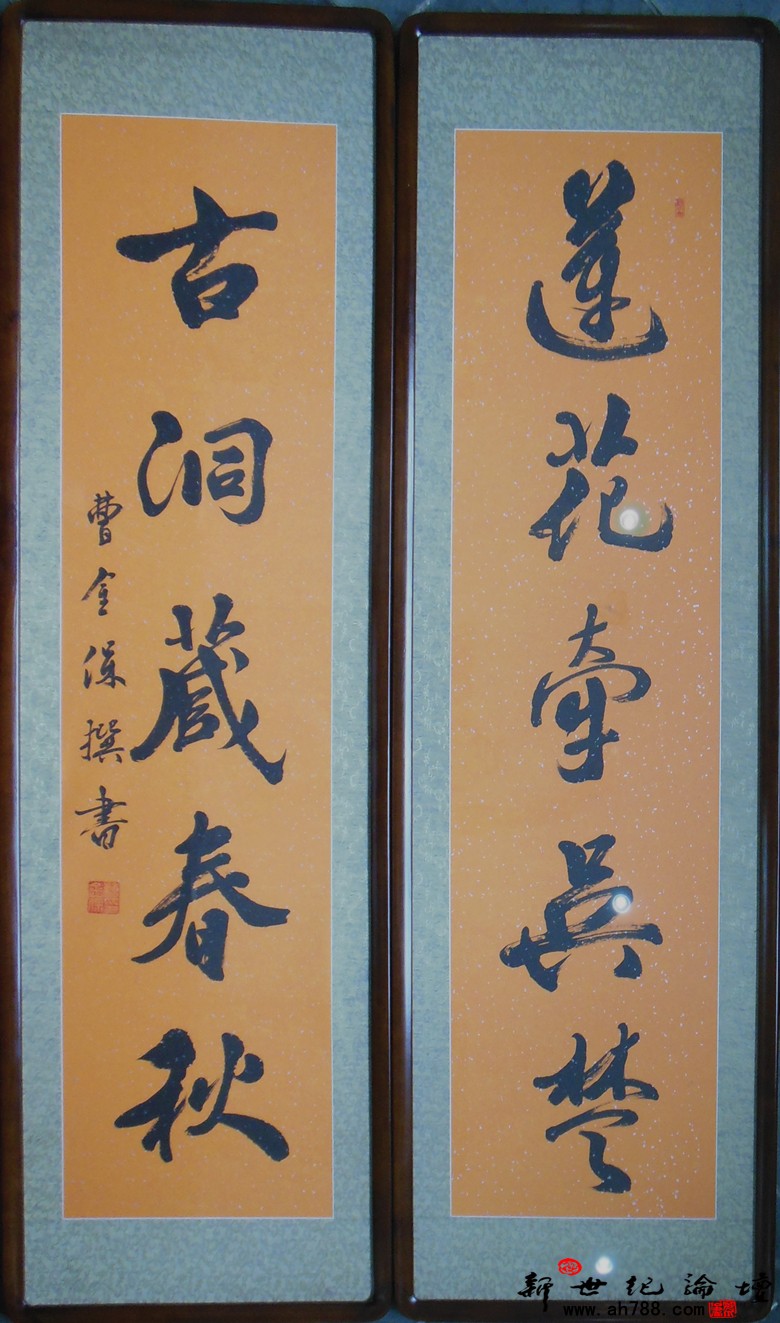 蓮花牽吳楚
古洞蔵春秋
曹金保撰書
新世纪論壇
www.ah788.com